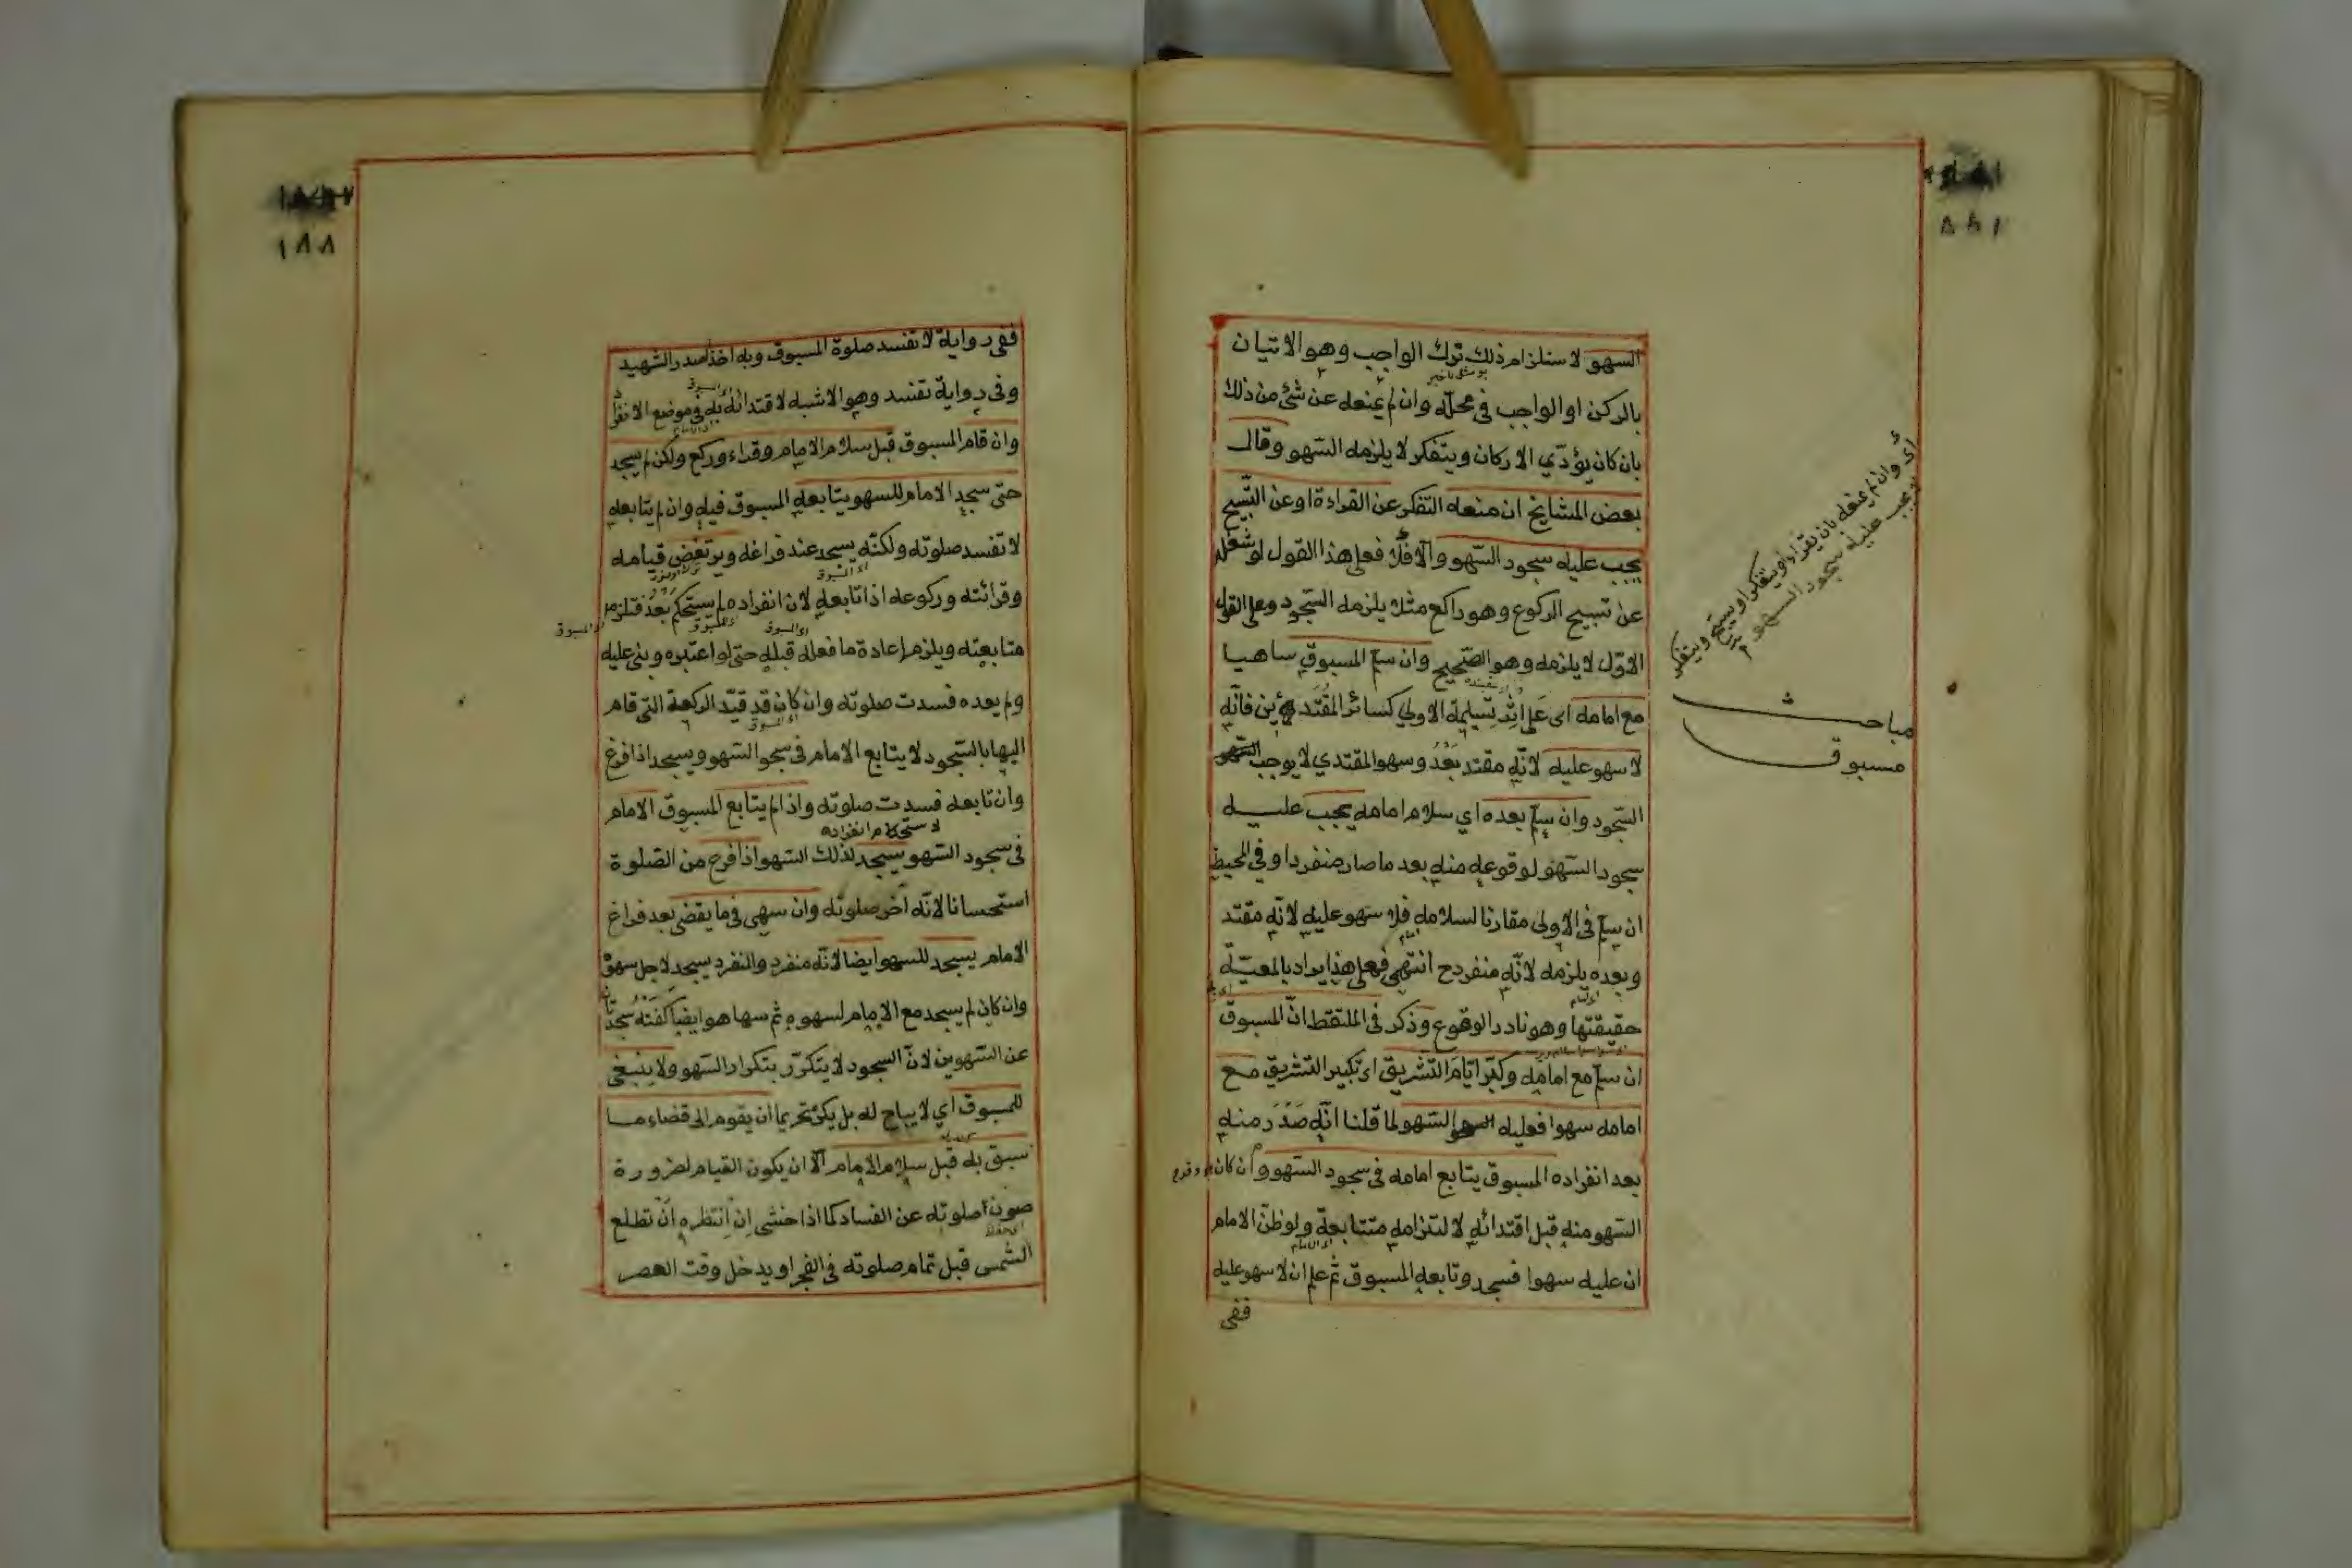 السهو لاستلزام ذلك ترك الواجب وهو الاتيان
بالركن او الواجب في محلّه وان لم يمنعه عن شئ من ذلك
بان كان يؤدّي الاركان ويتفكر لا يلزمه السهو وقال
بعض المشايخ ان منعه التفكر عن القراءة او عن التّسبيح
يجب عليه سجود السّهو والّا فلا فعلى هذا القول لو شغله
عن تسبيح الركوع وهو راكع مثلا يلزمه السّجود وعلى القول
الاوّل لا يلزمه وهو الصّحيح وان سلّم المسبوق ساهيا
مع امامه اى على اثر تسليمة الاولي كسائر المقتدئين فانّه
لا سهو عليه لانّه مقتد بَعْدُ وسهو المقتدي لا يوجب السّهو
السّجود وان سلّم بعده اي سلام امامه يجب عليه
سجود السّهو لوقوعه منه بعد ما صار منفردا وفي المحيط
ان سلّم في الاولى مقارنا لسلامه فلا سهو عليه لانّه مقتد
وبعده يلزمه لانّه منفرد ح انتهى فعلى هذا يراد بالمعيّة
حقيقتها وهو نادر الوقوع وذكر في الملتقط انّ المسبوق
ان سلّم مع امامه وكبّر ايّام التّشريق اى تكبير التّشريق مع
امامه سهوا فعليه السّهو لما قلنا انّه صَدَرَ منه
بعد انفراده المسبوق يتابع امامه فى سجود السّهو وان كان
السّهو منه قبل اقتدائه لالتزامه متابعة ولو ظنّ الامام
ان عليه سهوا فسجد وتابعه المسبوق ثم علم ان لا سهو عليه
ففى
اى وان لم يمنعه بان يقرأ ويتفكر او يسبح ويتفكر
يجب عليه سجود السهو
مباحث
مسبوق
١٨٨
ففى رواية لا تفسد صلوة المسبوق وبه اخذ صدر الشهيد
وفى رواية تفسد وهو الاشبه لاقتدائه به فى موضع الانفراد
وان قام المسبوق قبل سلام الامام وقراء وركع ولكن لم يسجد
حتى سجد الامام للسهو يتابعه المسبوق فيه وان لم يتابعه
لا تفسد صلوته ولكنّه يسجد عند فراغه ويرتفض قيامه
وقرائته وركوعه اذا تابعه لان انفراده لم يستحكم بَعْدُ فتلزم
متابعته ويلزم إعادة ما فعله قبله حتى لو اعتبره وبنى عليه
ولم يعده فسدت صلوته وان كان قد قيّد الركعة التى قام
اليها بالسّجود لا يتابع الامام فى سجو السّهو ويسجد اذا فرغ
وان تابعه فسدت صلوته واذا لم يتابع المسبوق الامام
لاستحكام انفراده
فى سجود السّهو يسجد لذلك السّهو اذا فرغ من الصّلوة
استحسانا لانّه آخر صلوته وان سهى فى ما يقضى بعد فراغ
الامام يسجد للسهو ايضا لانّه منفرد والمنفرد يسجد لاجل سهوه
وان كان لم يسجد مع الامام لسهوه ثم سها هو ايضا كَفَتْهُ سجدتان
عن السّهوين لانّ السجود لا يتكرّر بتكرار السّهو ولا ينبغى
للمسبوق اي لا يباح له بل يكره تحريما ان يقوم الى قضاء ما
سبق به قبل سلام الامام الّا ان يكون القيام لضرورة
صون صلوته عن الفساد كما اذا خشى اِن اِنتظره اَنْ تطلع
الشمس قبل تمام صلوته فى الفجر او يدخل وقت العصر